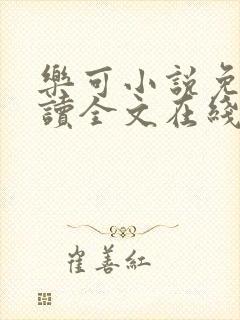 樂可小説免
讀全文在綫
崔善紅